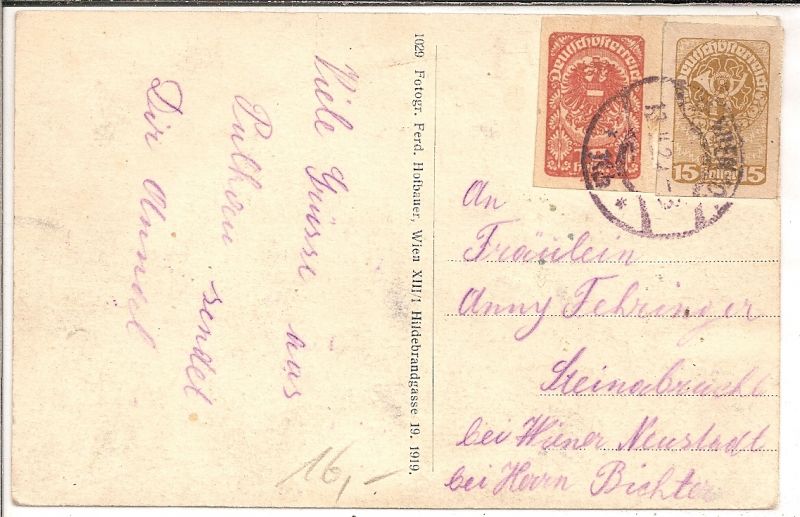 Viele Grüsse aus
sendet
Dir Anndl
1029 Fotogr. Ferd. Hofbauer, Wien XIII/1 Hildebrandgasse 19. 1919.
Deutschösterreich
Deutschösterreich
15 Heller 15
An
Fräulein
Anny Fehringer
Steinabrückl
bei Wiener Neustadt
bei Herrn Bichter
16,-